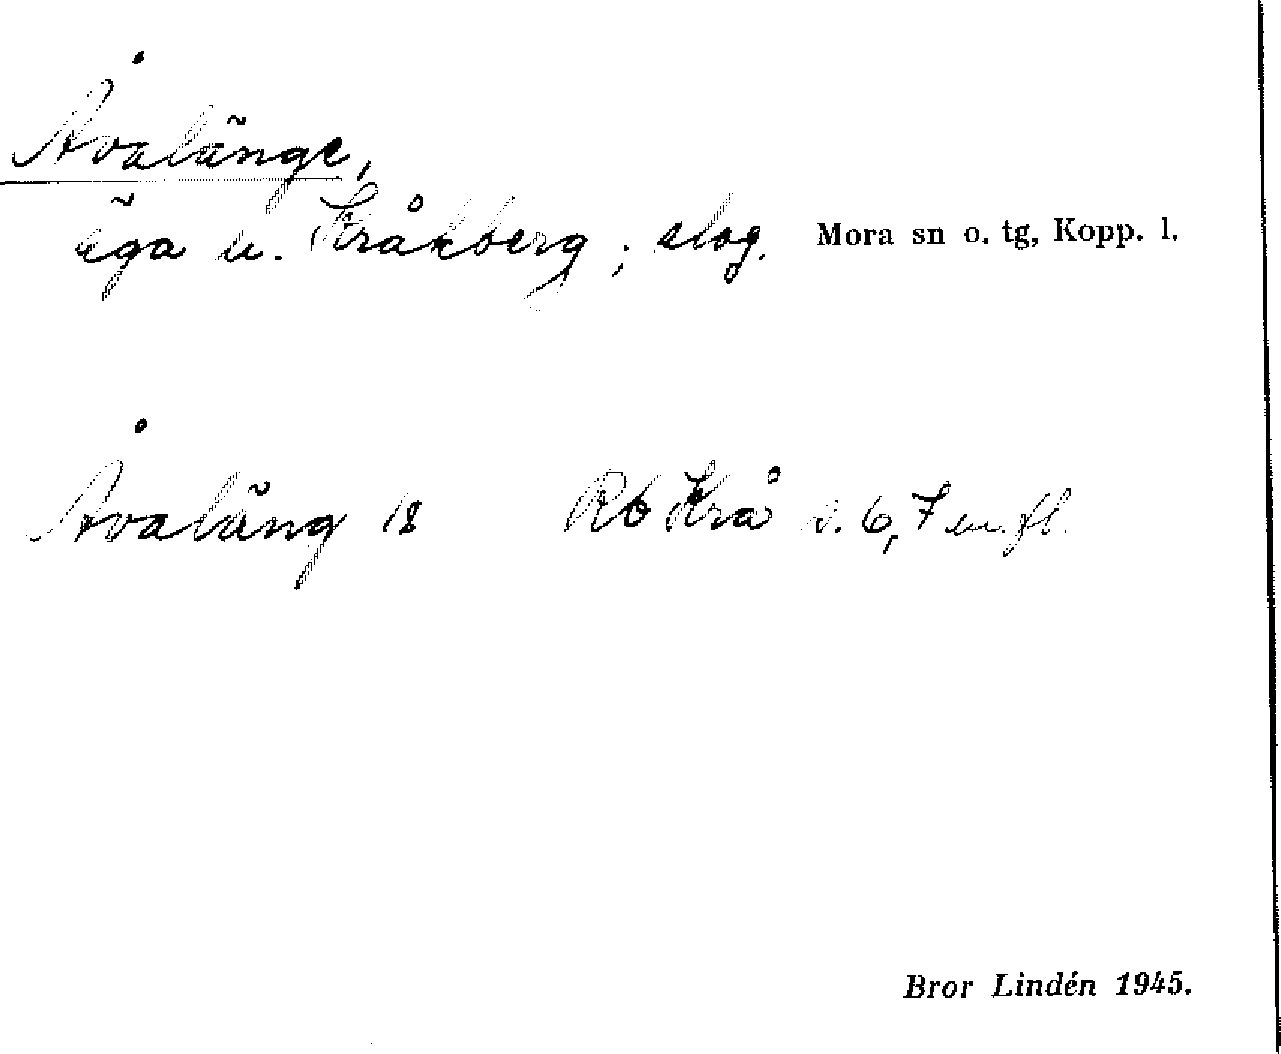 Åvalänge,
äga u. Kråkberg; slog. Mora sn o. tg, Kopp. l.
Åvaläng 18 Rb Krå s. 6, 7 m. fl.
Bror Lindén 1945.